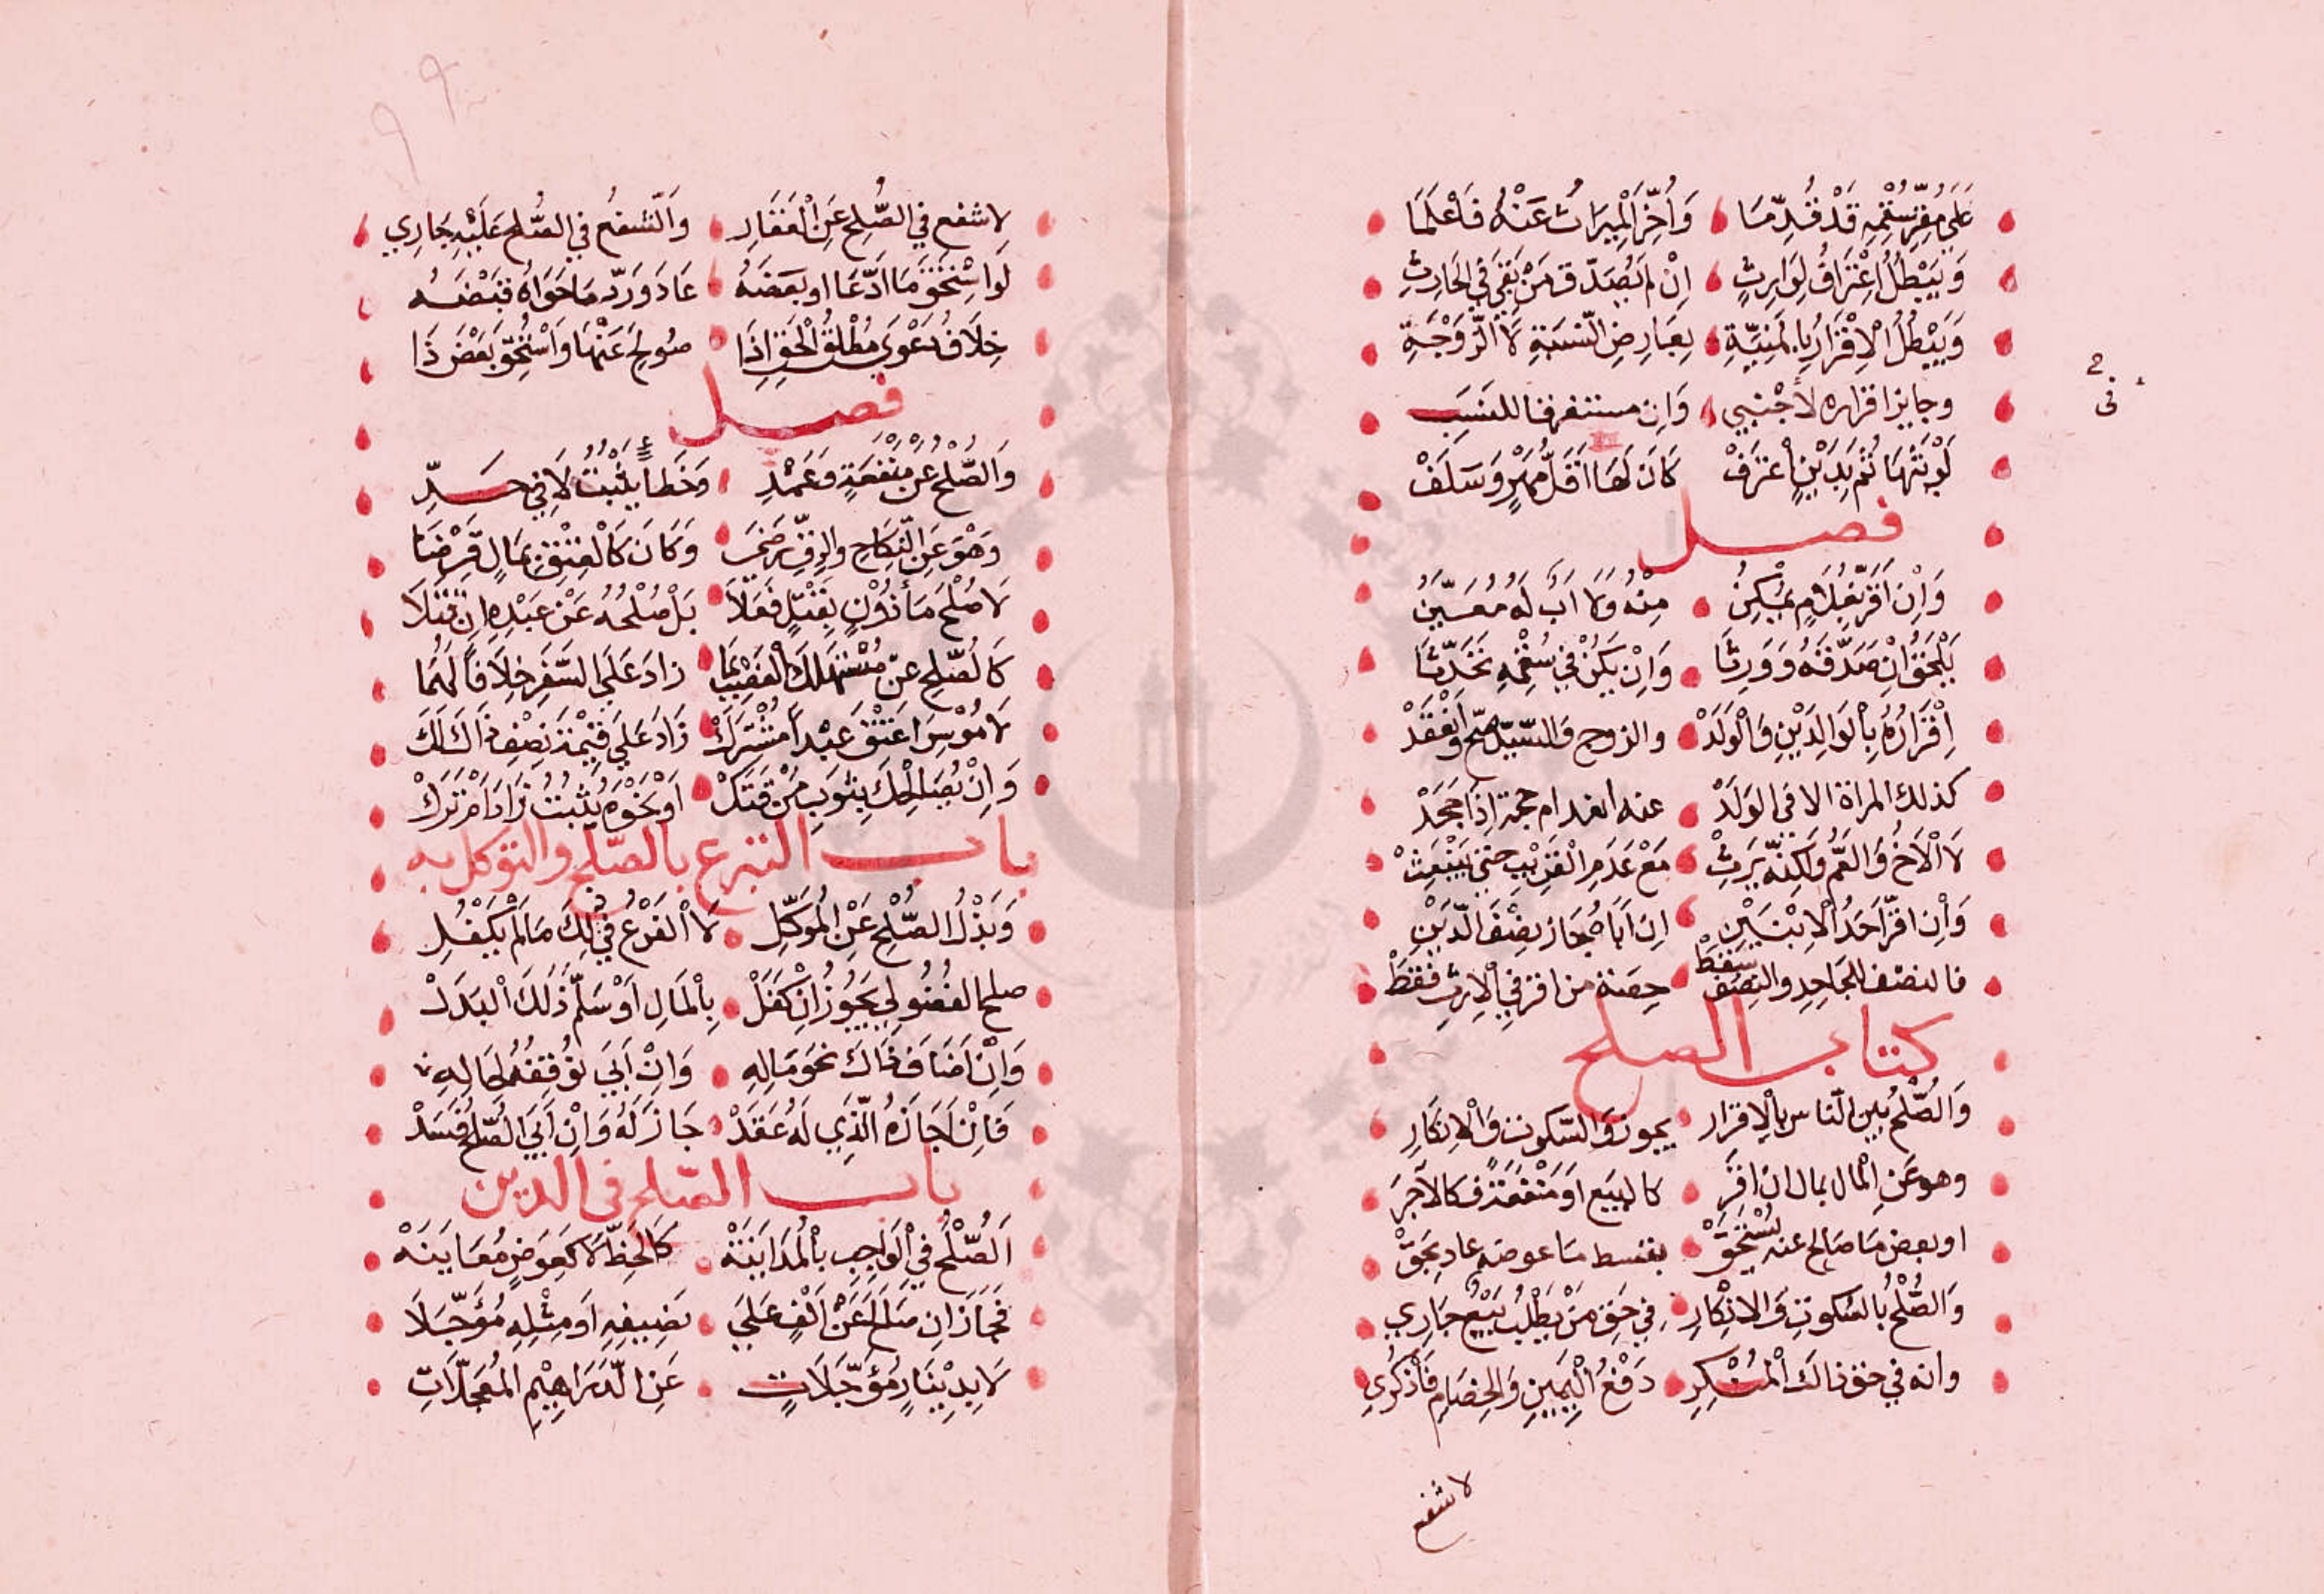 عَلَى مُقِرِّ سُقْمِهِ قَدْ قُدِّمَا وَأُخِّرَ الْمِيرَاثُ عَنْهُ فَاعْلَمَا
وَيَبْطُلُ اعْتِرَافُ لِوَارِثٍ اِنْ لم يُصَدّق مَنْ بَقِيَ فِي الحَارِثِ
وَيَبْطُلُ الْاِقْرَارُ بِالمَنِيَّةِ بِعَارِضِ النِّسْبَةِ لَا الزَّوْجَةِ
وجايز اقراره لأجْنبي وَان مستغرقا للنسَب
لَوْ بَتَّهَا ثُم بِدَيْنٍ اعْتَرَفْ كَانَ لَهَا اَقَلُّ مَهْرٍ وَسَلَفْ
فصل
وَاِنْ اَقَرَّ بِغُلَامٍ يُمْكِنُ مِنْهُ وَلَا اَبَ لَهُ مُعَيَّنُ
يَلْحَقُ اِنْ صَدَّقَهُ وَوَرِثَا وَاِنْ يَكُنْ فِي سُقْمِهِ تَحَدَّثَا
اِقْرَارُهُ بِالْوَالِدَيْنِ وَالْوَلَدْ والزوج والسَّيّد صحّ وانْعَقَدْ
كذلك المراة الا في الوَلَدْ عند انعدام حجة اِذَا جَحَدْ
لَا الْاَخُ وَالعَمُّ وَلَكِنَّهُ يَرِثْ مَعْ عَدَمِ الْقَرِيْبِ حتى يَنْبَعِثْ
وَاِن اقرّ اَحَدُ الْاِبْنَيْنِ ان اَبَاهُ حَاز نِصْفَ الدَّيْنِ
فالنصف للجَاحِدِ والنِصْفُ سَقَطْ حِصَة من اقر فِي الْاِرثِ فَقَطْ
كتاب الصلح
وَالصُّلْحُ بين النّاس بالْاِقرار يجوز وَالسّكوت وَالْاِنكَارِ
وهو عَنِ الْمال بمال ان اقَرَ كالبيَع اَوْ مَنْفَعَةً فكالآجرَ
او بعض مَا صَالح عنه يُسْتَحَقْ بقسط مَا عوضه عاد بحَقْ
وَالصُّلْحُ بالسُكوتِ وَالانْكارِ فِي حَقِ مَنْ يَطْلُبُ بَيْعٌ جَارِي
وانه في حق ذالك الْمُنْكِرِ دَفْعُ الْيَمِينِ وَالخِصَامِ فَاذْكُرِي
لا شفع
لا شفع في الصُّلِح عَنِ الْعَقَارِ وَالشفع في الصُّلح عَلَيْهِ جَارِي
لَوِ اسْتُحَقَّ مَا ادَّعَا او بَعضَهُ عَادَ وَرَدّ مَا حَوَاهُ قَبْضَهُ
خِلَافُ دَعْوَى مُطْلَقِ الْحَقِ اِذَا صُولِحَ عَنْهَا وَاسْتُحِقَّ بَعْضَ ذَا
فصل
وَالصُّلْحُ عَنْ مَنْفَعَةٍ وَعَمْدِ وَخَطَأ يَثْبُتُ لَا فِي حَدِّ
وَهْوَ عَنِ النّكَاحِ والرِقِّ رَضَى وَكَانَ كَالْعِتْقِ بِمَالٍ قَرْضَا
لَا صُلْحَ مَأْذُوْنٍ بِقَتْلٍ فَعَلَا بَلْ صُلْحُهُ عَنْ عَبْدِهِ اِن قَتَلَا
كَالصُّلحِ عَنْ مُسْتَهْلَكِ الْغَصْبِ بِمَا زادَ عَلَى السِّعْرِ خِلَافًا لَهُمَا
لَا مُوْسِرَ اعْتَقَ عَبْداً مُشْتَرَكْ زَادَ عَلَى قِيْمَة نِصْفِ ذَاكَ لَكَ
وَاِنْ يُصَالِحْكَ بِثَوبٍ مَنْ فَتَكْ اَوْ نَحْوَهُ يَثْبُتُ زَادَ اَمْ تَرَكْ
باب التبرع بالصّلح والتوكل به
وَبَذْلُ الصُّلْحِ عَنْ الْمُوَكَّلِ لَا الفَرْعُ فِي ذَلِكَ مَا لَمْ يَكْفُلِ
صلح الفضُولِي يَجُوْزُ اِنْ كَفَلْ بِالْمَالِ اَوْ سَلَّمْ ذَلَكَ الْبَدَلْ
وَاِنْ اَضَافَ ذَاكَ نَحْوَ مَالِهِ وَانْ اَبَى تُوْقِفْهُ لِحَالِهِ
فَاِنْ اَجَازَهُ الَّذِي لَهُ عَقَدْ جَازَ لَهُ وَاِنْ اَبَى الصُّلْحُ فَسَدْ
باب الصّلح في الدين
اَلصُّلْحُ فِي الْوَاجِبِ بِالْمُدَايَنَةْ كَالحَظِّ لَا كَعِوَضٍ مُعَايَنَهْ
فَجَازَ اِن صَالَحَ عَنْ اَلْفٍ عَلَى نَصِيفِهِ اَوْ مِثْلِهِ مُؤَجَّلَا
لَا بِدِيْنَارٍ مُؤَجَّلَاتِ عَنِ الدَّرَاهِيْمِ المُعَجَّلَاتِ